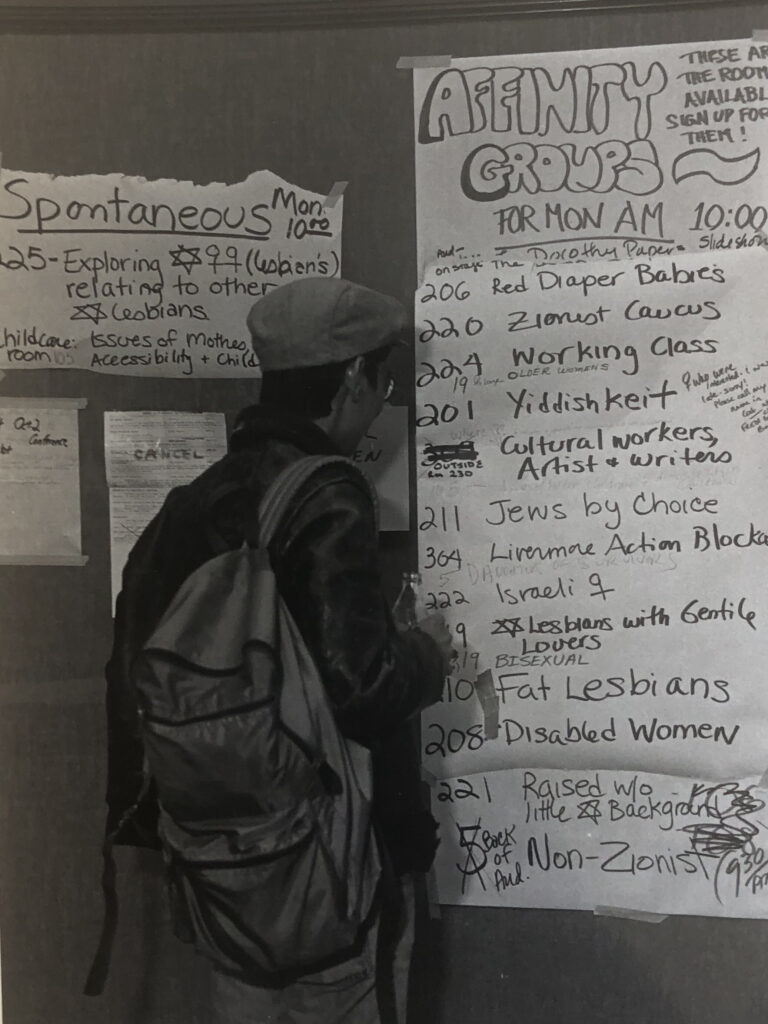 Spontaneous Mon. 10:00
225 - Exploring ✡ ♀♀ (Lesbien's)
relating to other
✡ Lesbians
Childcare: Issues of Mothe
room 105 Accessibility + Child
Q+2
Conference
CANCEL
EN
AFFINITY
GROUPS
THESE AR
THE ROOM
AVAILABL
SIGN UP FOR
THEM!
FOR MON AM 10:00
on stage The Dorothy Paper slideshow
206 Red Diaper Babies
220 Zionist Caucus
224 Working Class
19 OLDER WOMENS
201 Yiddishkeit
♀ who were
interested. I was
late - sorry!
Please call my
name in
OUTSIDE
Rm 230
Cultural workers,
Artist + Writers
211 Jews by Choice
304 Livermore Action Blocka
DAUGHTER OF SURVIVORS
222 Israeli ♀
19 ✡ Lesbians with Gentile
Lovers
19 BISEXUAL
210 Fat Lesbians
208 - Disabled Women
221 Raised w/o
little ✡ Background
Back
of
Aud.
Non-Zionist (9:30